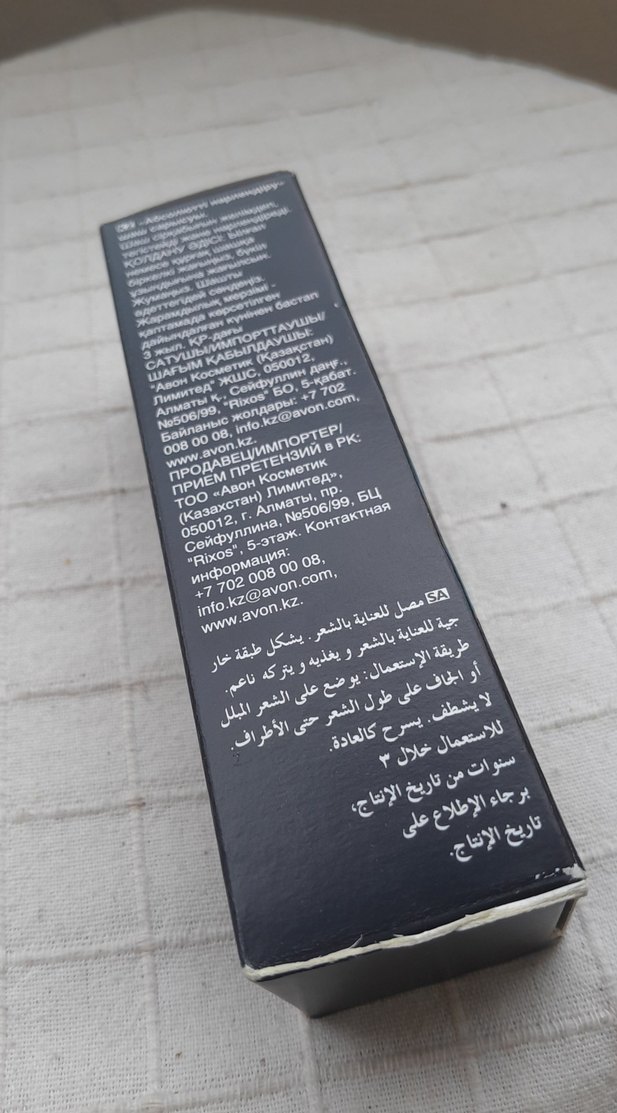 KZ «Абсолютті нәрлендіру»
шаш сарысуы.
Шаш қабығын
тегістейді және нәрлендіреді.
ҚОЛДАНУ ӘДІСІ: Ылғал
немесе құрғақ шашқа
біркелкі жағыңыз, бүкіл
ұзындығына жағылсын.
Жумаңыз. Шашты
әдеттегідей сәндеңіз.
Жарамдылық мерзімі -
қаптамада көрсетілген
дайындалған күнінен бастап
3 жыл. ҚР-дағы
САТУШЫ/ИМПОРТТАУШЫ/
ШАҒЫМ ҚАБЫЛДАУШЫ:
"Авон Косметик (Қазақстан)
Лимитед" ЖШС, 050012,
Алматы қ., Сейфуллин даңғ.,
№506/99, "Rixos" БО, 5-қабат.
Байланыс жолдары: +7 702
008 00 08, info.kz@avon.com,
www.avon.kz.
ПРОДАВЕЦ/ИМПОРТЕР/
ПРИЕМ ПРЕТЕНЗИЙ в РК:
ТОО «Авон Косметик
(Казахстан) Лимитед»,
050012, г. Алматы, пр.
Сейфуллина, №506/99, БЦ
"Rixos", 5-этаж. Контактная
информация:
+7 702 008 00 08,
info.kz@avon.com,
www.avon.kz.
SA مصل للعناية بالشعر. يشكل طبقة خار
جية للعناية بالشعر و يغذيه و يتركه ناعم.
طريقة الإستعمال: يوضع على الشعر المبلل
أو الجاف على طول الشعر حتى الأطراف.
لا يشطف. يسرح كالعادة.
للاستعمال خلال ٣
سنوات من تاريخ الإنتاج،
برجاء الإطلاع على
تاريخ الإنتاج.